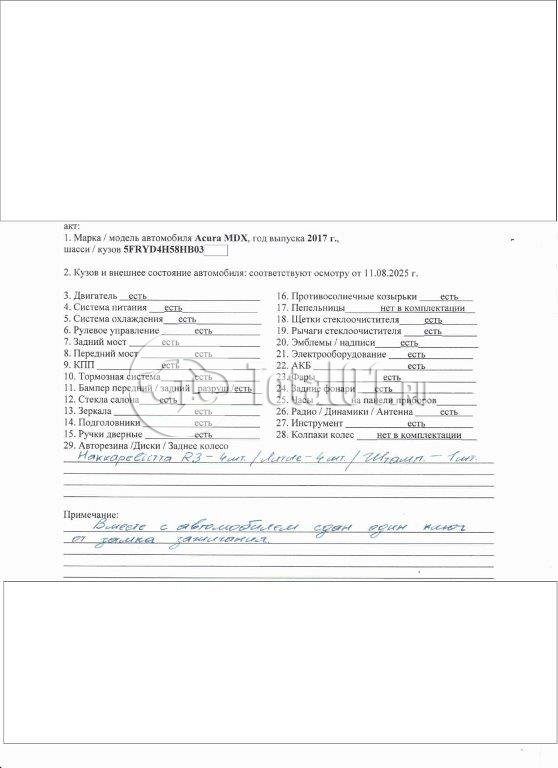 акт:
1. Марка / модель автомобиля Acura MDX, год выпуска 2017 г.,
шасси / кузов 5FRYD4H58HB03
2. Кузов и внешнее состояние автомобиля: соответствуют осмотру от 11.08.2025 г.
3. Двигатель есть
4. Система питания есть
5. Система охлаждения есть
6. Рулевое управление есть
7. Задний мост есть
8. Передний мост есть
9. КПП есть
10. Тормозная система есть
11. Бампер передний / задний разруш/есть
12. Стекла салона есть
13. Зеркала есть
14. Подголовники есть
15. Ручки дверные есть
16. Противосолнечные козырьки есть
17. Пепельницы нет в комплектации
18. Щетки стеклоочистителя есть
19. Рычаги стеклоочистителя есть
20. Эмблемы / надписи есть
21. Электрооборудование есть
22. АКБ есть
23. Фары есть
24. Задние фонари есть
25. Часы на панели приборов
26. Радио / Динамики / Антенна есть
27. Инструмент есть
28. Колпаки колес нет в комплектации
29. Авторезина /Диски / Заднее колесо
Наккаревитта R3 - 4 шт. / Литые - 4 шт. / Штамп. - 1 шт.
Примечание:
Вместе с автомобилем сдан один ключ
от замка зажигания.